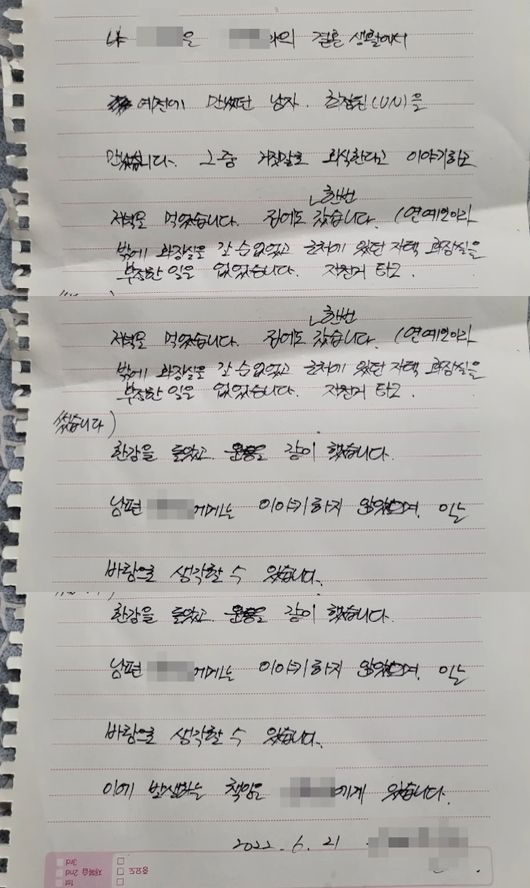 나 은 와의 결혼 생활에서
예전에 만났던 남자. 최정원(UN)을
만났습니다. 그 중 거짓말로 회식한다고 이야기하고
한번
저녁을 먹었습니다. 집에도 갔습니다. (연예인이라
밖에 화장실을 갈 수 없었고 근처에 있던 자택 화장실을
부정한 일은 없었습니다. 자전거 타고.
한번
저녁을 먹었습니다. 집에도 갔습니다. (연예인이라
밖에 화장실을 갈 수 없었고 근처에 있던 자택 화장실을
부정한 일은 없었습니다. 자전거 타고.
썼습니다)
한강을 돌았고 운동을 같이 했습니다.
남편 에게는 이야기하지 않았으며, 이는
바람으로 생각할 수 있습니다.
한강을 돌았고 운동을 같이 했습니다.
남편 에게는 이야기하지 않았으며, 이는
바람으로 생각할 수 있습니다.
이에 발생하는 책임은 에게 있습니다.
2022. 6. 21
중요도
1st
2nd
3rd